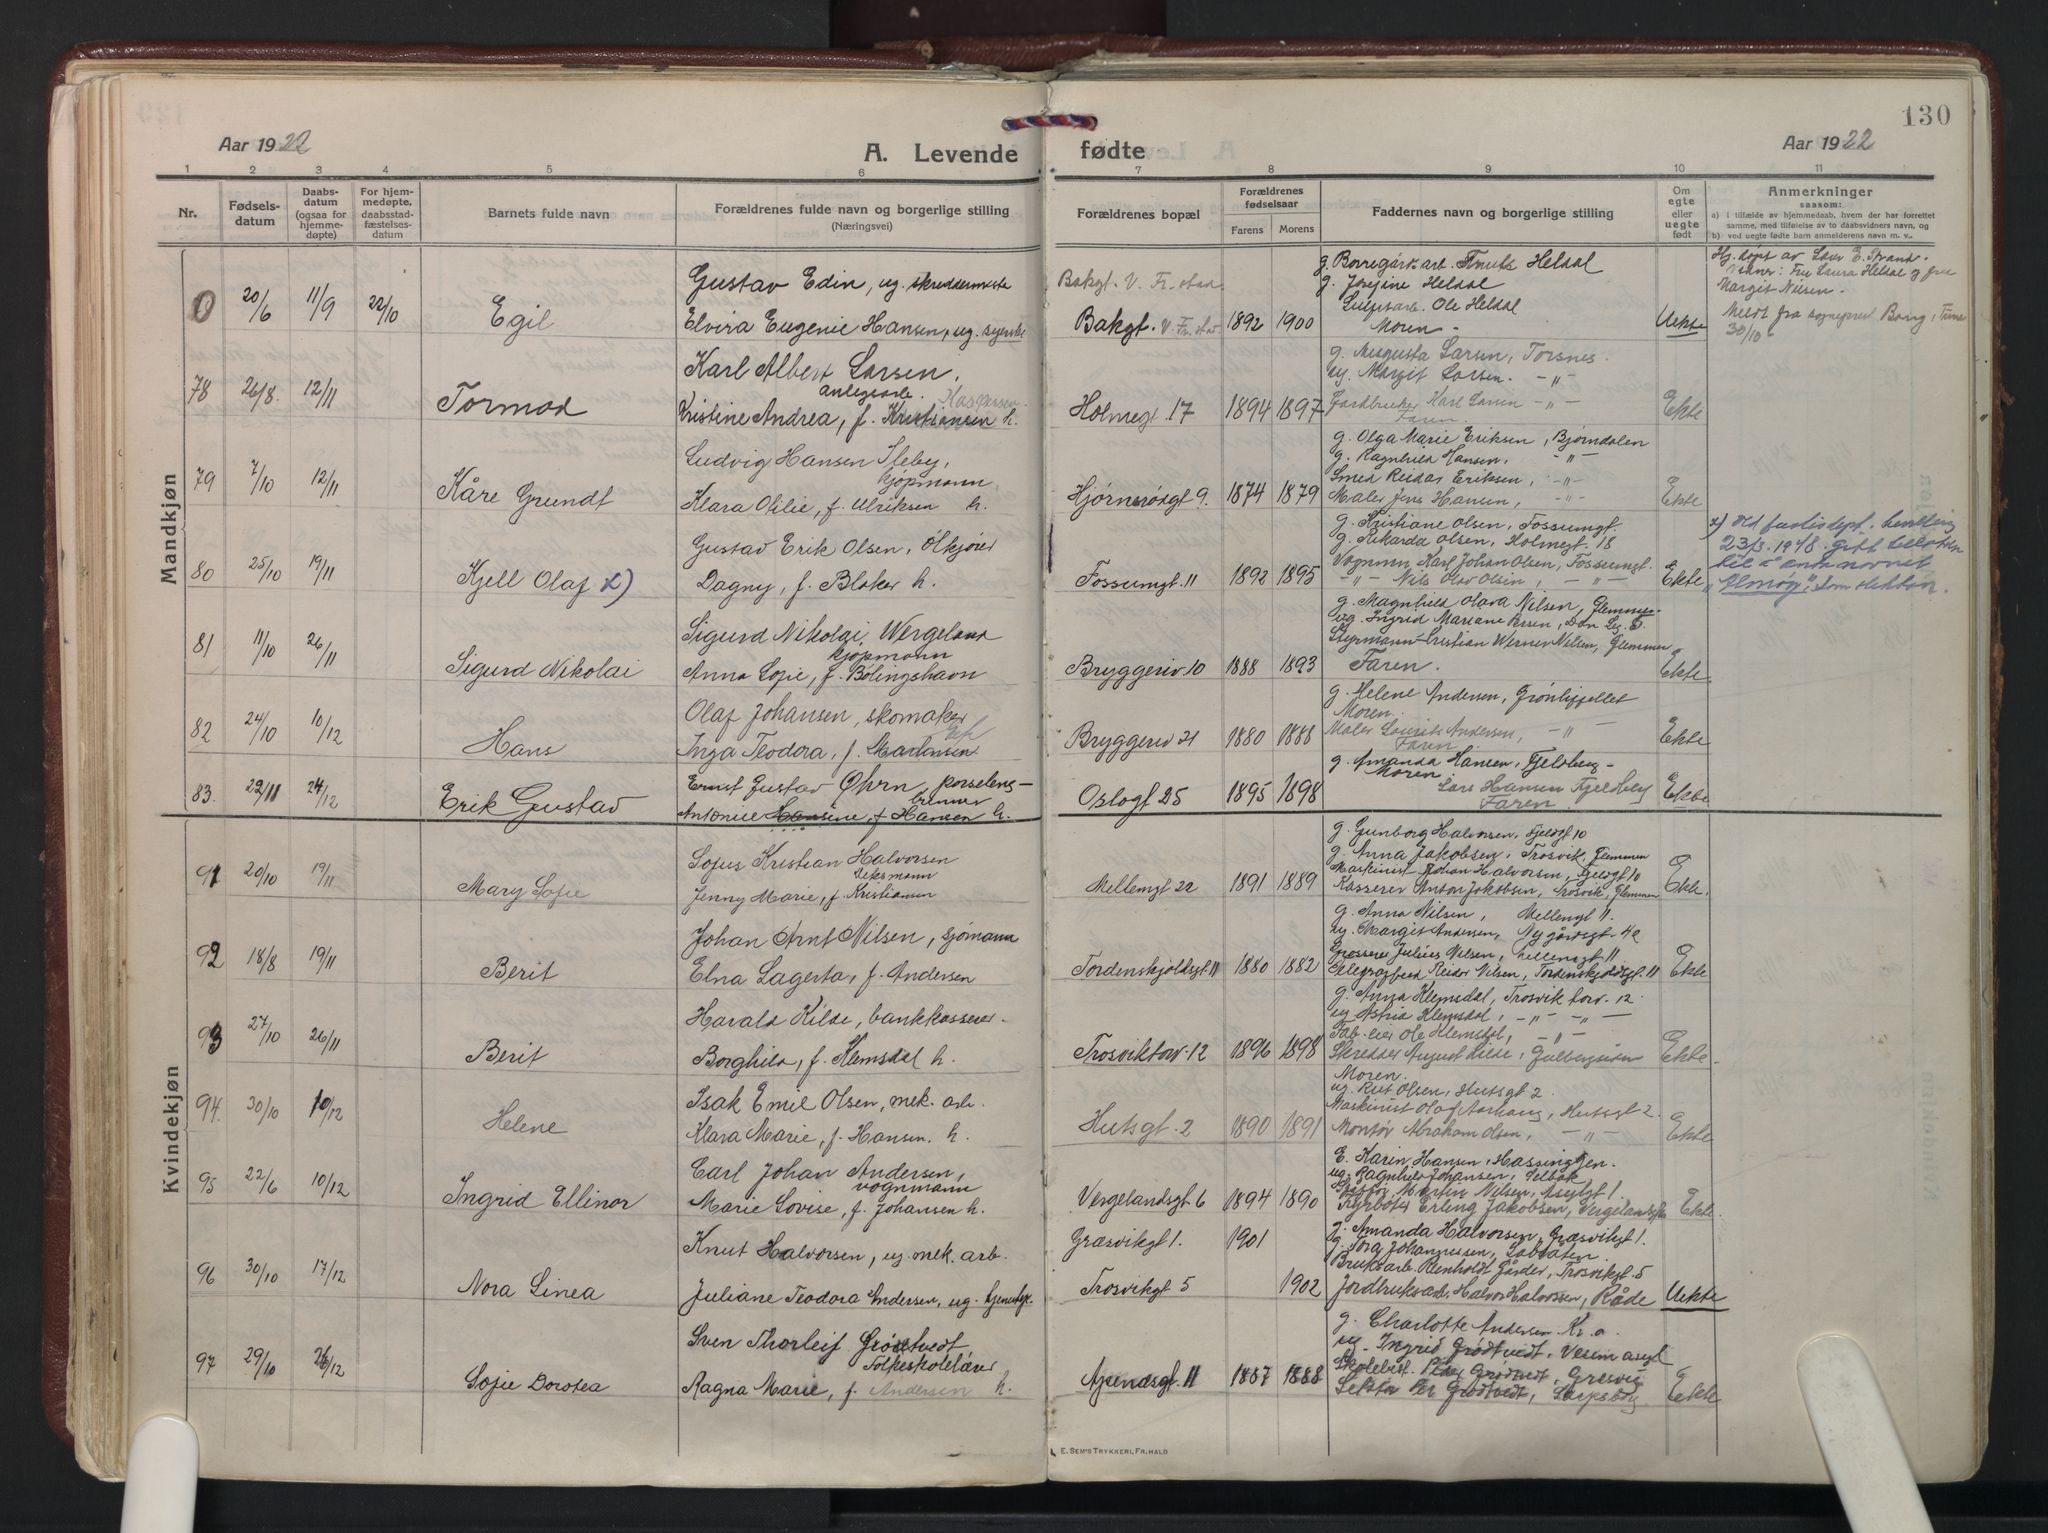 130
Aar 1922
A. Levende fødte
Aar 1922
1 2 3 4 5 6 7 8 9 10 11
Nr.
Fødsels-
datum
Daabs-
datum
(ogsaa for
hjemme-
døpte)
For hjem-
medøpte,
daabsstad-
fæstelses-
datum
Barnets fulde navn
Forældrenes fulde navn og borgerlige stilling
(Næringsvei)
Forældrenes bopæl
Forældrenes
fødselsaar
Farens Morens
Faddernes navn og borgerlige stilling
Om
egte
eller
uegte
født
Anmerkninger
saasom:
a) i tilfælde av hjemmedaab, hvem der har forrettet
samme, med tilføielse av to daabsvidners navn, og
b) ved uegte fødte barn anmelderens navn m. v..
Mandkjøn
0 20/6 11/9 22/10 Egil
Gustav Edin, ug.
Elvira Eugenie Hansen, ug.
Bakgt. V. Fr.stad
Bakgt. V. Fr.stad 1892 1900
g. Borregårdsarb. Knut Heldal
g. Josefine Heldal
Ole Heldal
Moren
Uekte
Margit Nilsen.
30/10
78 26/8 12/11 Tormod
Karl Albert Larsen,
anlegsarb. Kaspersen
Kristine Andrea, f. Kristiansen h.
Holmegt. 17 1894 1897
g. Augusta Larsen, Torsnes.
ug. Margit Larsen. -"-
Gardbruker Karl Larsen -"-
Faren.
Ekte
79 7/10 12/11 Kåre Grundt
Ludvig Hansen Ileby,
kjøpmann
Klara Otilie, f. Ulriksen h.
Hjørnerødgt 9. 1874 1879
g. Olga Marie Eriksen, Bjørndalen
g. Ragnhild Hansen, -"-
Smed Reidar Eriksen, -"-
Maler Jens Hansen, -"-
Ekte
80 25/10 19/11 Kjell Olaf x)
Gustav Erik Olsen, ølkjører
Dagny, f. Blaker h.
Fossumgt. 11 1892 1895
g. Kristiane Olsen, Fossumgt.
g. Rikarda Olsen, Holmegt. 18
Vognmn. Karl Johan Olsen, Fossumgt.
-"- Nils Olav Olsen, -"-
Ekte
x) Ved justisdept. bevilling
23/3. 1948 gitt
til å anta navnet
"Elmøy" som slektsn.
81 11/10 26/11 Sigurd Nikolai
Sigurd Nikolai Wergeland
kjøpmann
Anna Sofie, f. Bølingshavn
Bryggeriv 10 1888 1893
g. Magnhild Olava Nilsen, Glemmen
ug. Ingrid Mariane
Styrmann Cristian Werner Nilsen, Glemmen
Faren.
Ekte
82 24/10 10/12 Hans
Olaf Johansen, skomaker
Inga Teodora, f. Martinsen
Bryggeriv 21 1880 1888
g. Helene Andersen, Grønlifjellet
Moren
Maler Laurits Andersen, -"-
Faren
Ekte
83. 22/11 24/12 Erik Gustav
Ernst Gustav Øhrn porselens-
brenner
Antonie Hansine, f. Hansen h.
Oslogt 25 1895 1898
g. Amanda Hansen, Fjeldberg
Moren
Lars Hansen Fjeldberg
Faren.
Ekte
Kvindekjøn
91 20/10 19/11 Mary Sofie
Sofus Kristian Halvorsen
Jenny Marie, f. Kristiansen
Mellemgt 22 1891 1889
g. Gunborg Halvorsen, Fjeldgt 10
g. Anna Jakobsen, Trosvik, Glemmen
Maskinist Johan Halvorsen, Fjeldgt 10
Kasserer Anton Jakobsen, Trosvik, Glemmen
Ekte.
92 18/8 19/11 Berit
Johan Arnt Nilsen, sjømann
Elna Lagerta, f. Andersen
Tordenskjoldsgt 11 1880 1882
g. Anna Nilsen, Mellemgt 11.
ug. Margit Andersen, Nygårdsgt. 42
Grosserer Julius Nilsen, Mellemgt 11
Telegrafbud Reidar Nilsen, Tordenskjoldsgt. 11
Ekte
93 27/10 26/11 Berit
Harald Kilde, bankkasserer
Borghild, f. Klemsdal h.
Trosviktorv 12 1896 1898
g. Anna Klemsdal, Trosvik torv. 12.
ug Astrid Klemsdal, -"- -"-
Fab.eier Ole Klemsdal, -"-
Skredder August Kilde,
Ekte
94. 30/10 10/12 Helene
Isak Emil Olsen, mek. arb.
Klara Marie, f. Hansen. h.
Hutsgt. 2 1890 1891
Moren.
ug. Rut Olsen, Hutsgt 2.
Maskinist Olaf Aarhaug, Hutsgt 2.
Montør Abraham Olsen, -"-
Ekte
95 22/6 10/12 Ingrid Ellinor
Carl Johan Andersen,
vognmann
Marie Lovise, f. Johansen h.
Vergelandsgt 6 1894 1890
E. Karen Hansen, Hassingen.
ug. Ragnhild Johansen, Selbak
Martin Nilsen, Asylgt 1.
Fyrbøter Erling Jakobsen, Vergelandsgt 6
Ekte.
96 30/10 17/12 Nora Linea
Knut Halvorsen, ug. mek. arb.
Juliane Teodora Andersen, ug. tjenestpi.
Græsvikgt 1. 1901
Trosvikgt 5 1902
g. Amanda Halvorsen, Græsvikgt 1.
g. Borg Johannessen, Labbåten
Bruksarb. Renholdt Gårder, Trosvikgt. 5
Jordbruksarb. Halvor Halvorsen, Råde
Uekte
97 29/10 26/12 Sofie Dorotea
Sven Thorleif Grødtvedt
Folkeskolelærer
Ragna Marie, f. Andersen h.
Apenæsgt. 11 1887 1888
g. Charlotte Andersen Kr.a.
ug. Ingrid Grødtvedt. Vesem asyl
Skolebest. Peder Grødtvedt, Gresvig
Per Grødtvedt, Sarpsborg
Ekte
E. SEM'S TRYKKERI, FR.HALD